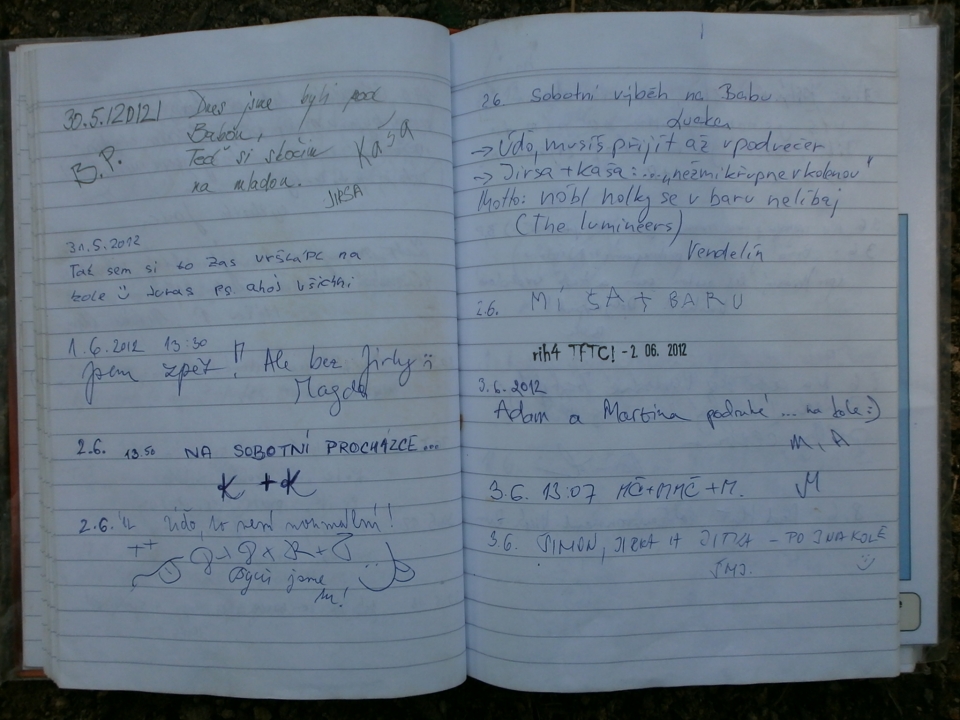 30.5.12012|
Dnes jsme byli pod
Babou,
Teď si skočím
na mladou.
B.P.
Káša
JIRSA
31.5.2012
Tak sem si to zas vršlápl na
kole ps. ahoj všichni
1.6.2012 13:30
Jsem zpět! Ale bez Jirky
Magda
2.6. 13 50 NA SOBOTNÍ PROCHÁZCE...
K + K
2.6.'12 Údo, to není normální!
++
jsme
tu!
2.6. Sobotní výběh na Babu
→ Údo, musíš přijít až v podvečer
→ Jirsa + Káša: ... "než mi křupne v kolenou"
Motto: nóbl holky se v baru nelíbaj
(The lumineers)
Vendelín
2.6. MÍŠA + BARU
rih4 TFTC! - 2. 06. 2012
3.6.2012
Adam a Martina podruhé ... na kole :)
M, A
3.6. 13:07 MČ+MMČ+M.
M
3.6. ŠIMON, JIRKA A JITKA - TO JNAKOLE
ŠMJ.